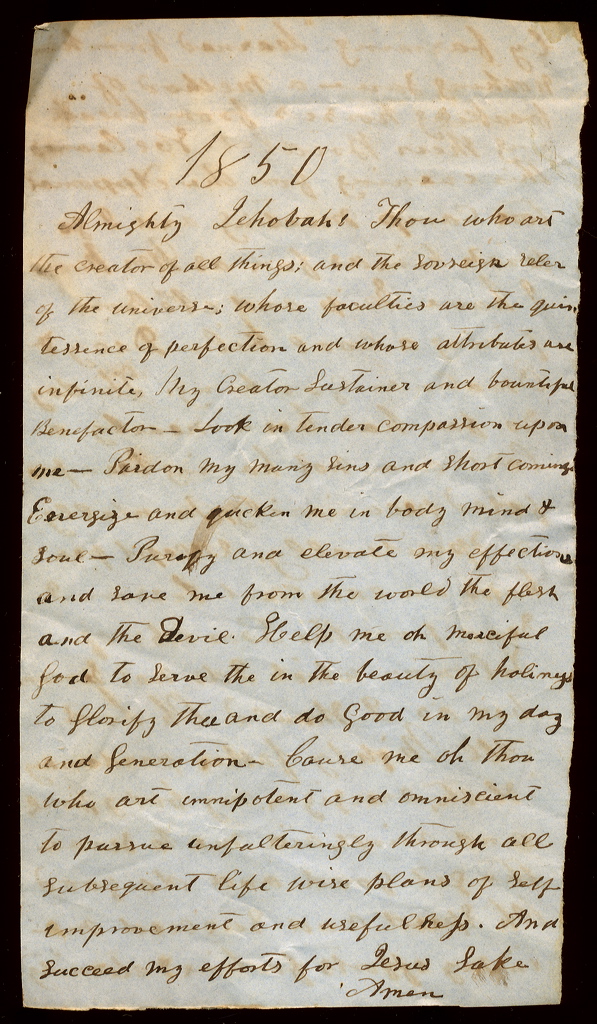 1850
Almighty Jehovah! Thou who art
the creator of all things; and the sovreign ruler
of the universe; whose faculties are the quin
tessence of perfection and whose attributes are
infinite, My Creator Sustainer and bountiful
Benefactor — Look in tender compassion upon
me — Pardon my many sins and short comings
Energize and quicken me in body mind &
soul — Purify and elevate my effections
and save me from the world the flesh
and the Devil. Help me oh merciful
God to serve the in the beauty of holiness
to Glorify thee and do Good in my day
and Generation — Cause me oh thou
who art omnipotent and omniscient
to pursue unfalteringly through all
subsequent life wise plans of self
improvement and usefulness. And
succeed my efforts for Jesus Sake
Amen